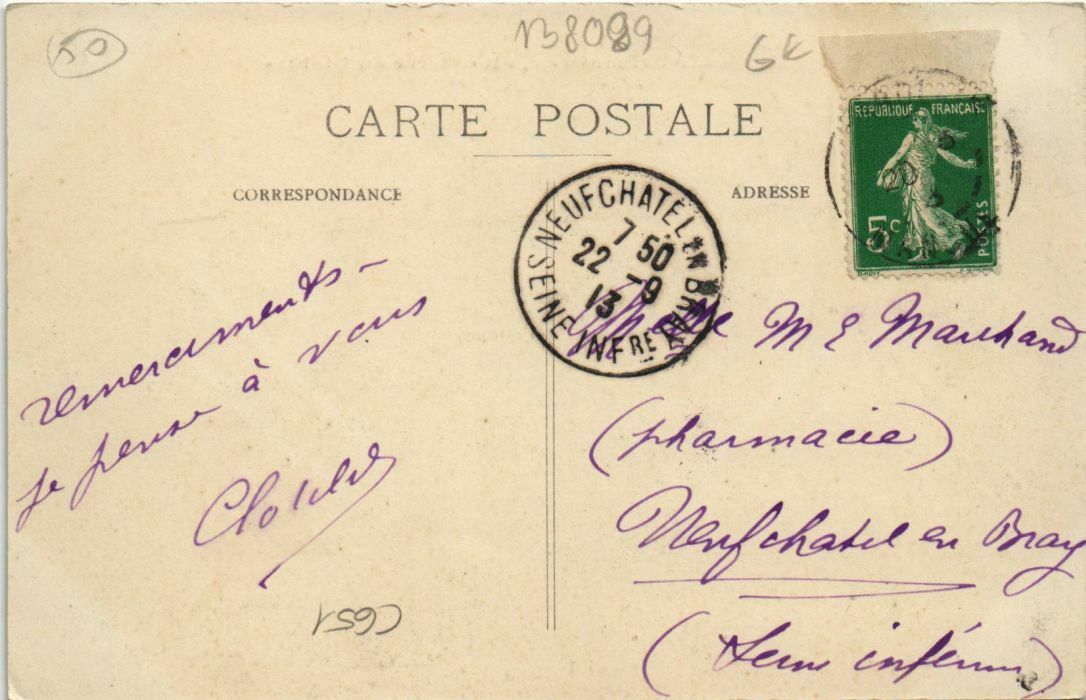 50
B8089
6€
CARTE POSTALE
CORRESPONDANCE
ADRESSE
REPUBLIQUE FRANÇAISE
5c
POSTES
NEUFCHATEL EN BRAY
7 50
22 -9
13
SEINE INFRE
remerciments -
je pense à vous
Clotilde
M E Marchand
(pharmacie)
Neufchatel en Bray
(Seine inférieure)
C651